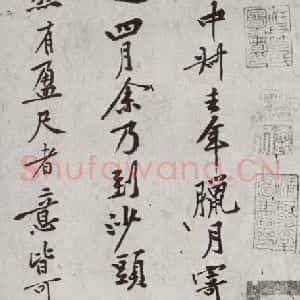 中州去年臘月寄
四月余乃到沙頭
有盈尺者意皆可
Shufawang.CN